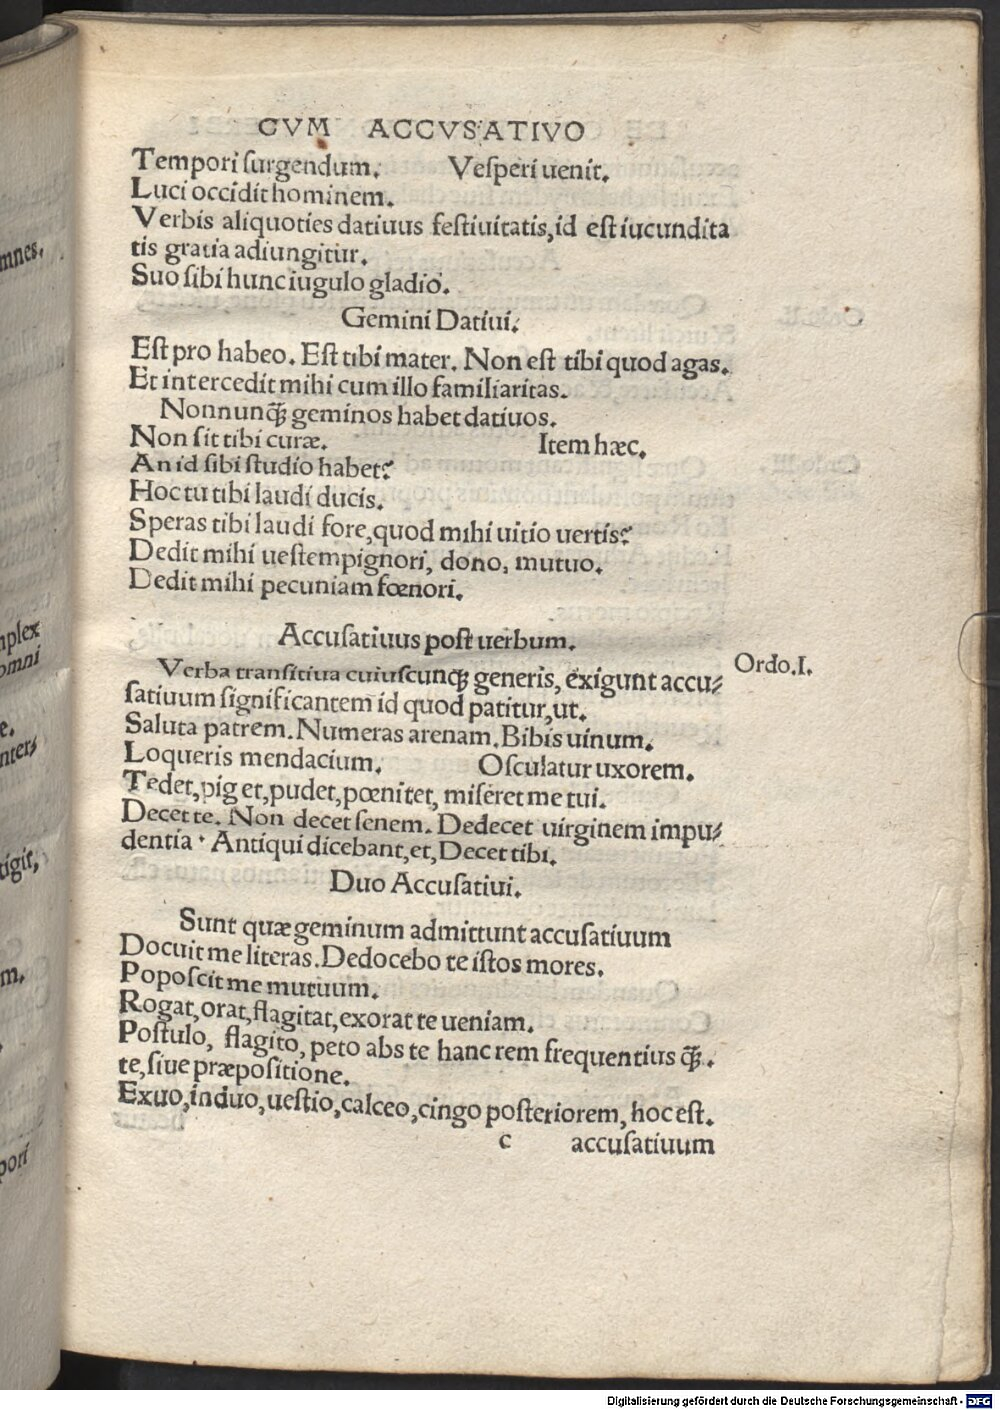 CVM ACCVSATIVO
Tempori ſurgendum. Veſperi uenit.
Luci occidit hominem.
Verbis aliquoties datiuus feſtiuitatis, id eſt iucundita
tis gratia adiungitur.
Suo ſibi hunc iugulo gladio.
Gemini Datiui.
Eſt pro habeo. Eſt tibi mater. Non eſt tibi quod agas.
Et intercedit mihi cum illo familiaritas.
Nonnunꝗ̃ geminos habet datiuos.
Non ſit tibi curæ. Item hæc.
An id ſibi ſtudio habet?
Hoc tu tibi laudi ducis.
Speras tibi laudi fore, quod mihi uitio uertis?
Dedit mihi ueſtem pignori, dono, mutuo.
Dedit mihi pecuniam fœnori.
Accuſatiuus poſt uerbum.
Verba tranſitiua cuiuſcunꝗ̃ generis, exigunt accu⸗ Ordo.I.
ſatiuum ſignificantem id quod patitur, ut.
Saluta patrem. Numeras arenam. Bibis uinum.
Loqueris mendacium. Oſculatur uxorem.
Tedet, piget, pudet, pœnitet, miſeret me tui.
Decet te. Non decet ſenem. Dedecet uirginem impu⸗
dentia · Antiqui dicebant, et, Decet tibi.
Duo Accuſatiui.
Sunt quæ geminum admittunt accuſatiuum
Docuit me literas. Dedocebo te iſtos mores.
Popoſcit me mutuum.
Rogat, orat, flagitat, exorat te ueniam.
Poſtulo, flagito, peto abs te hanc rem frequentius ꝗ̃.
te, ſiue præpoſitione.
Exuo, induo, ueſtio, calceo, cingo poſteriorem, hoc eſt.
c accuſatiuum
mnes.
mplex
omni
e.
nter⸗
tigit,
m.
pori
Digitalisierung gefördert durch die Deutsche Forschungsgemeinschaft - DFG